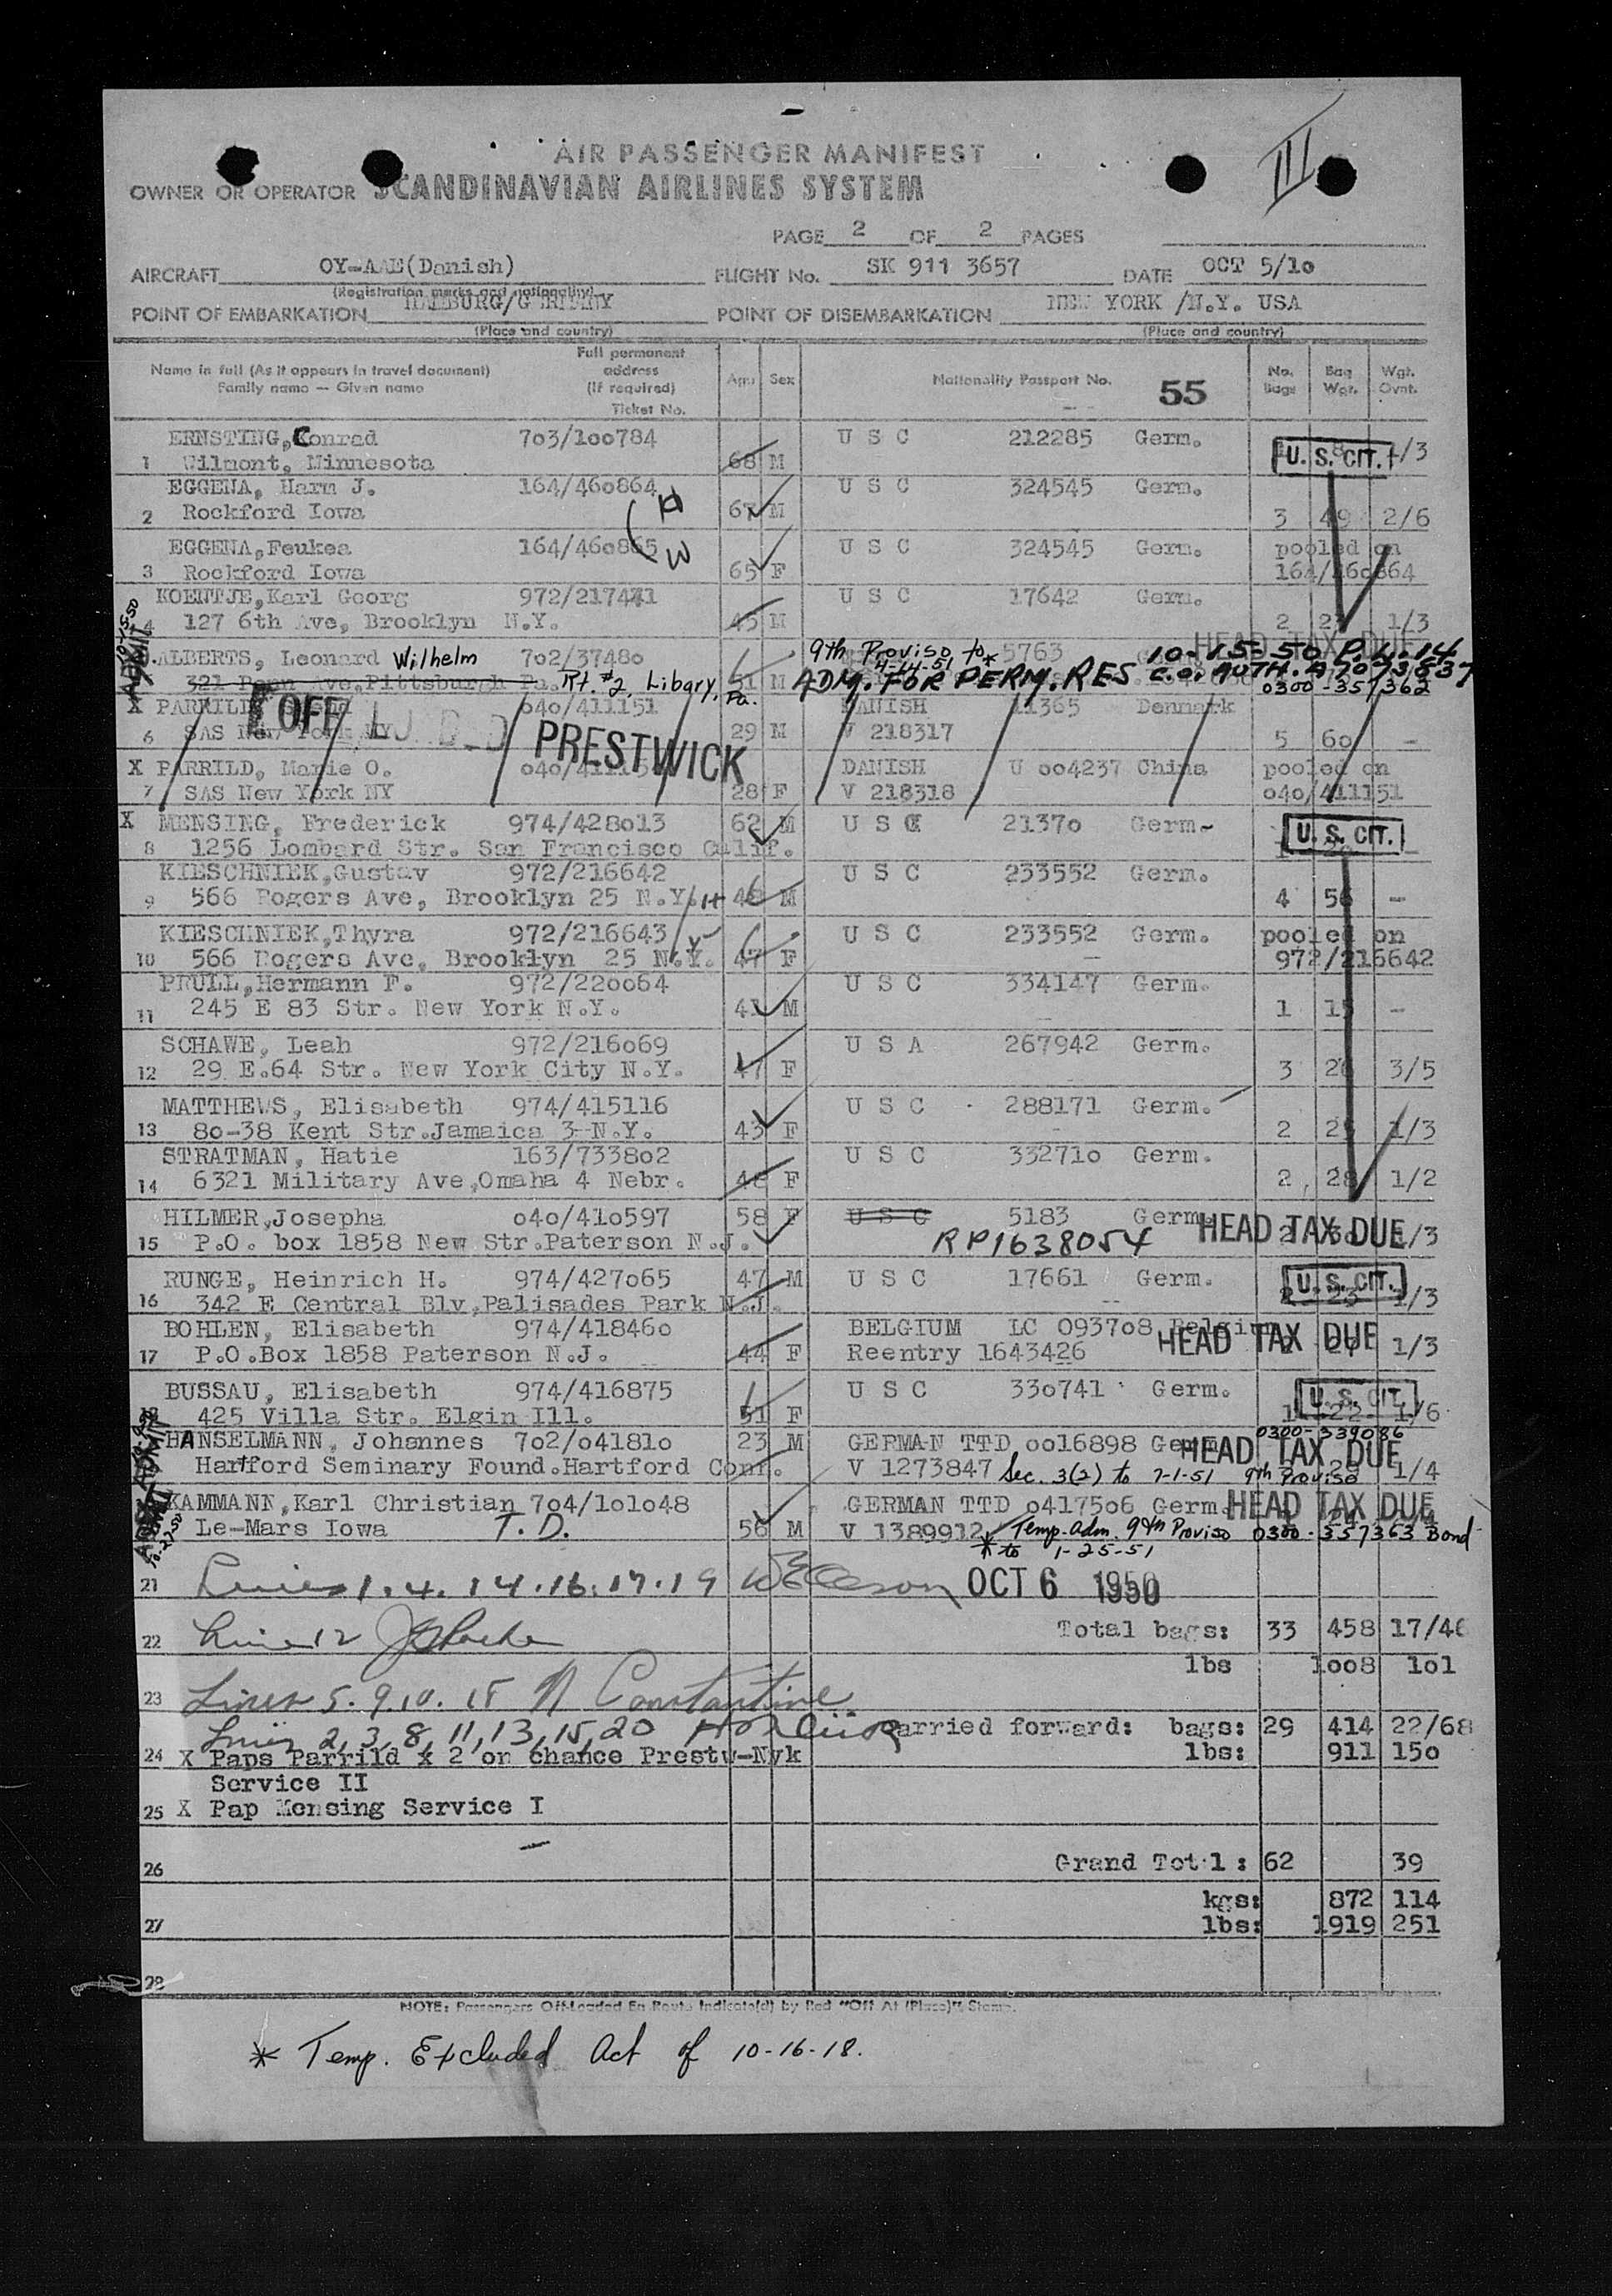 III
AIR PASSENGER MANIFEST
OWNER OR OPERATOR SCANDINAVIAN AIRLINES SYSTEM
PAGE 2 OF 2 PAGES
AIRCRAFT OY-AAE(Danish) FLIGHT No. SK 911 3657 DATE OCT 5/10
(Registration marks and nationality)
POINT OF EMBARKATION HAMBURG/GERMANY POINT OF DISEMBARKATION NEW YORK /N.Y. USA
(Place and country) (Place and country)
Name in full (As it appears in travel document) Family name — Given name
Full permanent address (If required) Ticket No.
Age Sex Nationality Passport No. 55 No. Bags Bag Wgt. Wgt. Ovnt.
ERNSTING, Conrad 703/100784 U S C 212285 Germ.
1 Wilmont, Minnesota 68 M U.S. CIT. 1/3
EGGENA, Harm J. 164/460864 H U S C 324545 Germ.
2 Rockford Iowa 67 M 3 49 2/6
EGGENA, Feukea 164/460865 W U S C 324545 Germ. pooled on
3 Rockford Iowa 65 F 164/460864
KOENTJE, Karl Georg 972/217441 U S C 17642 Germ.
4 127 6th Ave, Brooklyn N.Y. 45 M 2 1/3
HEAD TAX DUE
ALBERTS, Leonard Wilhelm 702/37480 9th Proviso to* 5763 10-25-50 P.L.-14
4-14-51
321 Penn Ave, Pittsburgh Pa. Rt. #2, Libary, Pa. M ADM. FOR PERM. RES C.O. AUTH. A7073837
0300-357362
X PARRILD, 040/411151 DANISH 11365 Denmark
OFF PRESTWICK
6 SAS New York NY 29 M V 218317 5 60 -
X PARRILD, Marie O. DANISH U 004237 China pooled on
7 SAS New York NY 28 F V 218318 040/411151
X MENSING, Frederick 974/428013 62 M U S C 21370 Germ- U.S. CIT.
8 1256 Lombard Str. San Francisco Calif.
KIESCHNIEK, Gustav 972/216642 U S C 233552 Germ.
9 566 Rogers Ave, Brooklyn 25 N.Y. H 48 M 4 56 -
KIESCHNIEK, Thyra 972/216643 U S C 233552 Germ. pooled on
10 566 Rogers Ave, Brooklyn 25 N.Y. 47 F 972/216642
PRULL, Hermann F. 972/220064 U S C 334147 Germ.
11 245 E 83 Str. New York N.Y. 41 M 1 15 -
SCHAWE, Leah 972/216069 U S A 267942 Germ.
12 29 E.64 Str. New York City N.Y. 47 F 3 3/5
MATTHEWS, Elisabeth 974/415116 U S C 288171 Germ.
13 80-38 Kent Str. Jamaica 3 N.Y. 43 F 2 1/3
STRATMAN, Hatie 163/733802 U S C 332710 Germ.
14 6321 Military Ave, Omaha 4 Nebr. F 2 28 1/2
HILMER, Josepha 040/410597 58 F U S C 5183 Germ. HEAD TAX DUE
15 P.O. box 1858 New Str. Paterson N.J. RP1638054 1/3
RUNGE, Heinrich H. 974/427065 47 M U S C 17661 Germ. U.S. CIT.
16 342 E Central Blv, Palisades Park N.J. 1/3
BOHLEN, Elisabeth 974/418460 BELGIUM LC 093708 Belgium HEAD TAX DUE
17 P.O.Box 1858 Paterson N.J. 44 F Reentry 1643426 1/3
BUSSAU, Elisabeth 974/416875 U S C 330741 Germ. U.S. CIT.
18 425 Villa Str. Elgin Ill. 51 F 1 22 1/6
0300-339086
HANSELMANN, Johannes 702/041810 23 M GERMAN TTD 0016898 Germ. HEAD TAX DUE
Hartford Seminary Found. Hartford Conn. V 1273847 Sec. 3(2) to 7-1-51 9th Proviso 1/4
KAMMANN, Karl Christian 704/101048 GERMAN TTD 0417506 Germ. HEAD TAX DUE
Le-Mars Iowa T.D. 56 M V 1389912 Temp. Adm. 9th Proviso 0300-357363 Bond
* to 1-25-51
21 Lines 1. 4. 14. 16. 17. 19 OCT 6 1950
22 Line 12 Total bags: 33 458 17/46
lbs 1008 101
23 Lines 5. 9. 10. 18 N Constantine
Lines 2, 3, 8, 11, 13, 15, 20 Carried forward: bags: 29 414 22/68
24 X Paps Parrild x 2 on chance Prestw-Nyk lbs: 911 150
Service II
25 X Pap Mensing Service I
26 Grand Total: 62 39
kgs: 872 114
27 lbs: 1919 251
28
NOTE: Passengers Off-Loaded En Route Indicate(d) by Red "Off At (Place)" Stamp.
* Temp. Excluded Act of 10-16-18.